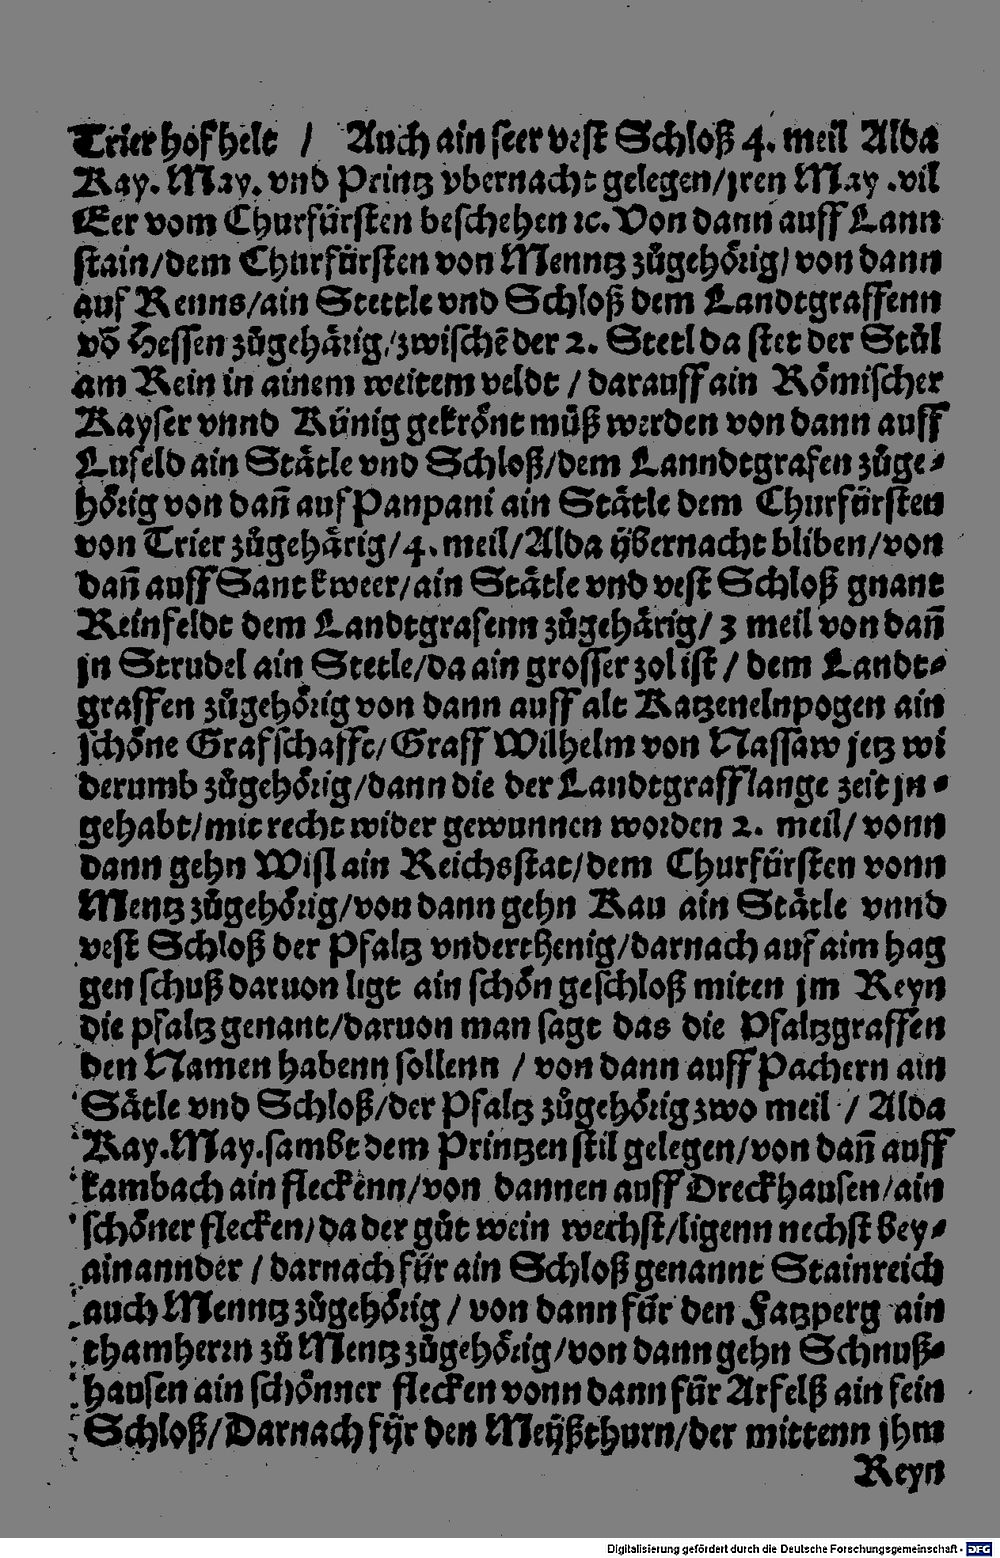 Trier hof helt / Auch ain seer vest Schloß 4. meil Alda
Kay. May. vnd Printz vbernacht gelegen/jren May .vil
Eer vom Churfürsten beschehen ꝛc. Von dann auff Lann
stain/dem Churfürsten von Menntz zůgehörig/von dann
auf Renns/ain Stettle vnd Schloß dem Landtgraffenn
võ Hessen zůgehärig/zwischẽ der 2. Stetl da stet der Stůl
am Rein in ainem weitem veldt / darauff ain Römischer
Kayser vnnd Künig gekrönt můß werden von dann auff
Lufeld ain Stätle vnd Schloß/dem Lanndtgrafen zůge-
hörig von dañ auf Panpani ain Stätle dem Churfürsten
von Trier zůgehärig/4. meil/Alda ÿbernacht bliben/von
dañ auff Sant kweer/ain Stätle vnd vest Schloß gnant
Reinfeldt dem Landtgrafenn zůgehärig/ 3 meil von dañ
jn Strudel ain Stetle/da ain grosser zol ist / dem Landt-
graffen zůgehörig von dann auff alt Katzenelnpogen ain
schöne Grafschafft/Graff Wilhelm von Nassaw jetz wi
derumb zůgehörig/dann die der Landtgraff lange zeit jn-
gehabt/mit recht wider gewunnen worden 2. meil/ vonn
dann gehn Wisl ain Reichsstat/dem Churfürsten vonn
Mentz zůgehörig/von dann gehn Kau ain Stätle vnnd
vest Schloß der Pfaltz vnderthenig/darnach auf aim hag
gen schuß daruon ligt ain schön geschloß miten jm Reyn
die pfaltz genant/daruon man sagt das die Pfaltzgraffen
den Namen habenn sollenn / von dann auff Pachern ain
Sätle vnd Schloß/der Pfaltz zůgehörig zwo meil / Alda
Kay.May.sambt dem Printzen stil gelegen/von dañ auff
kambach ain fleckenn/von dannen auff Dreckhausen/ain
schöner flecken/da der gůt wein wechst/ligenn nechst bey-
ainannder / darnach für ain Schloß genannt Stainreich
auch Menntz zůgehörig / von dann für den Fatzperg ain
thamherrn zů Mentz zůgehörig/von dann gehn Schnuß-
hausen ain schönner flecken vonn dann für Arfelß ain fein
Schloß/Darnach fÿr den Meÿßthurn/der mittenn jhm
Reyn
Digitalisierung gefördert durch die Deutsche Forschungsgemeinschaft - DFG